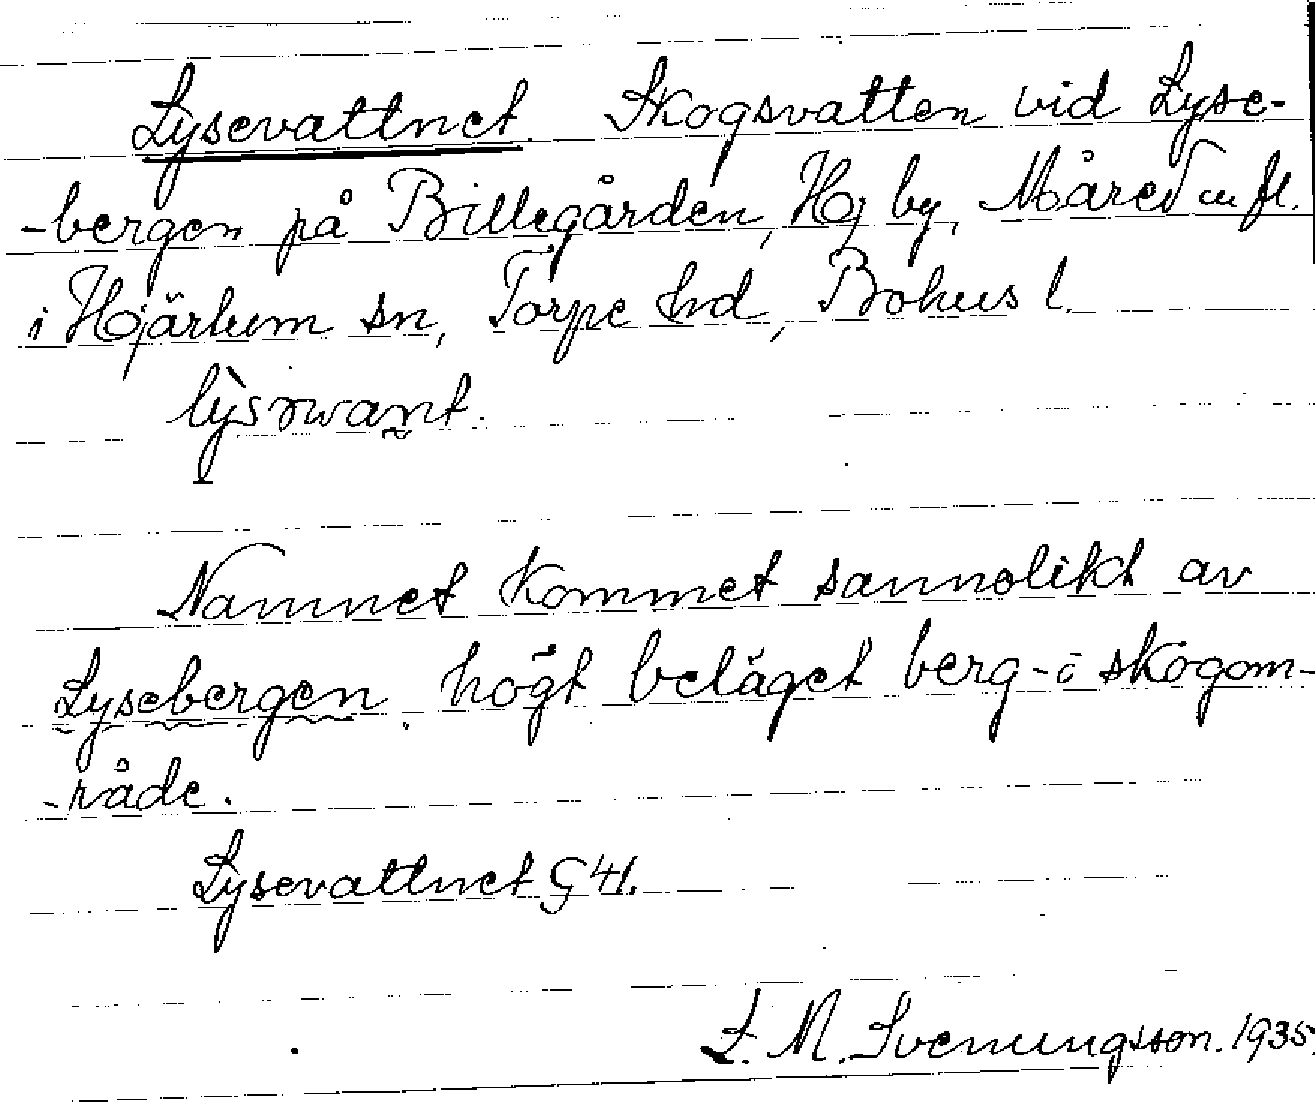 Lysevattnet. Skogsvatten vid Lyse-
-bergen på Billegården, Hj by, Måred m fl.
i Hjärtum sn, Torpe hd, Bohus l.
Namnet kommet sannolikt av
Lysebergen, högt beläget berg- o skogom-
-råde.
Lysevattnet G 41.
L. M. Svenungsson. 1935.